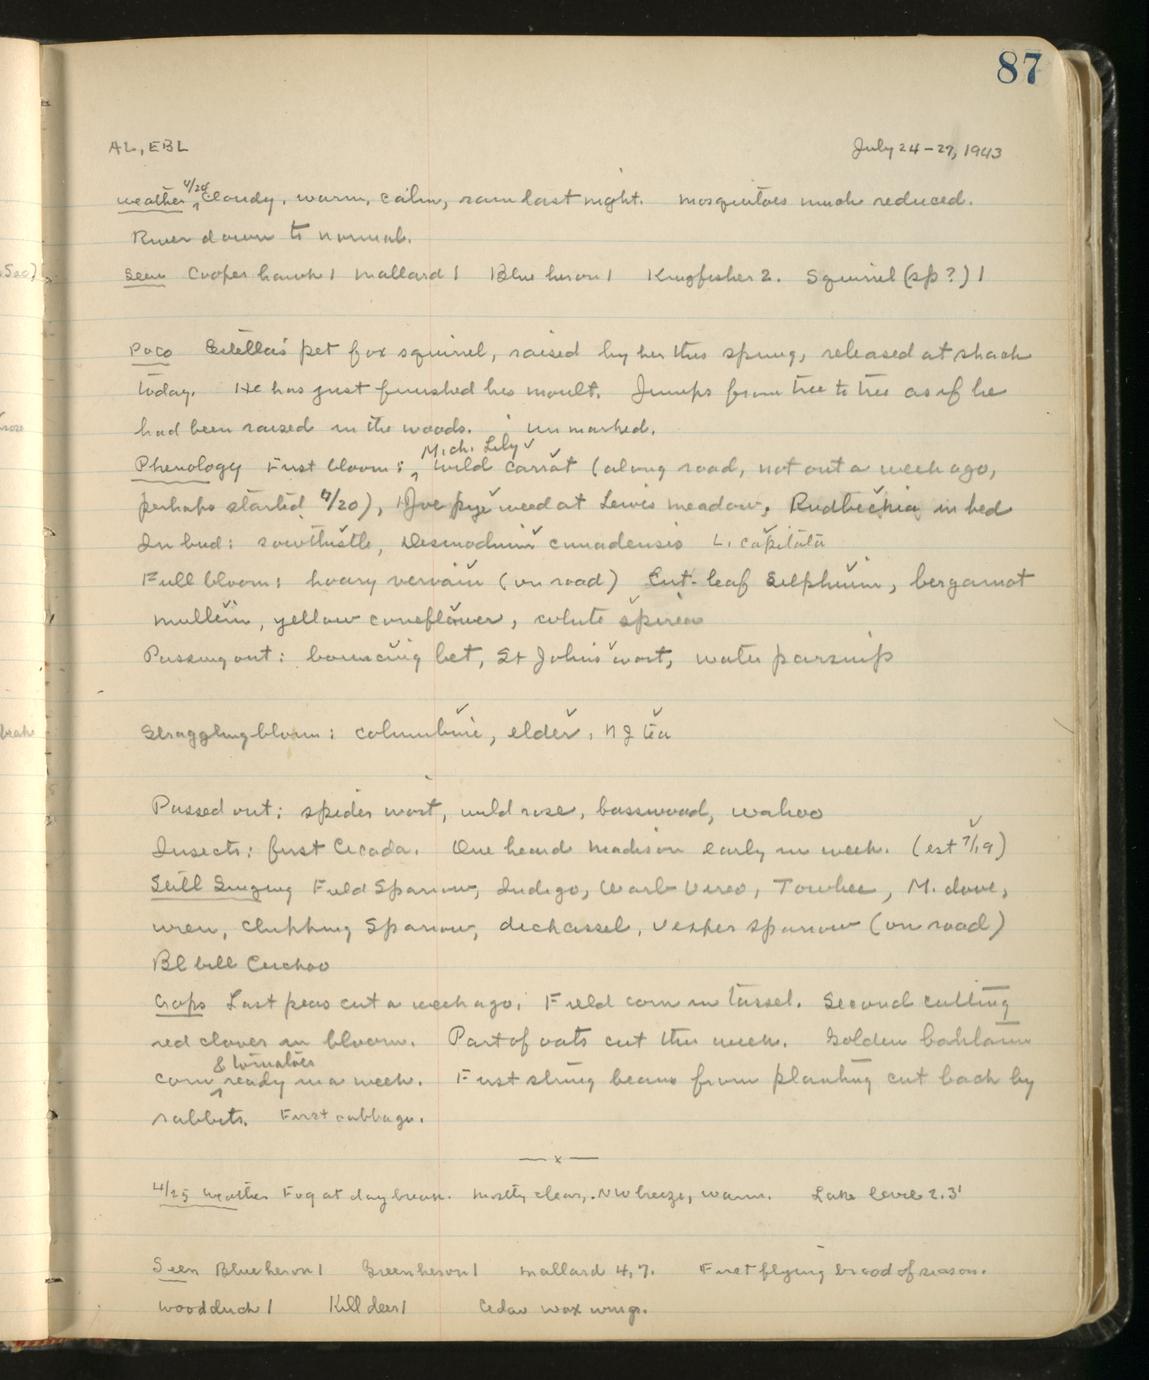 87
AL, EBL July 24-27, 1943
weather 4/24 Cloudy, warm, calm, rain last night. Mosquitoes much reduced.
River down to normal.
Seen Cooper hawk 1 Mallard 1 Blue heron 1 Kingfisher 2. Squirrel (sp?) 1
Poco Estella's pet fox squirrel, raised by her this spring, released at shack
today. He has just finished his moult. Jumps from tree to tree as if he
had been raised in the woods. Unmarked.
Mich. Lily
Phenology First bloom: wild carrot (along road, not out a week ago,
perhaps started 7/20), Joe pye weed at Lewis meadow, Rudbeckia in bed
In bud: sowthistle, Desmodium canadensis L. capitata
Full bloom: hoary vervain (on road) Cut-leaf Silphium, bergamot
mullein, yellow coneflower, white spirea
Passing out: bouncing bet, St Johns wort, water parsnip
Straggling bloom: columbine, elder, N J tea
Passed out: spider wort, wild rose, basswood, wahoo
Insects: first Cicada. One heard Madison early in week. (est 7/19)
Still Singing Field Sparrow, Indigo, Warb Vireo, Towhee, M. dove,
wren, Chipping Sparrow, dickcissel, Vesper sparrow (on road)
Bl bill Cuckoo
Crops Last peas cut a week ago. Field corn in tassel. Second cutting
red clover in bloom. Part of oats cut this week. Golden bantam
& tomatoes
corn ready in a week. First string beans from planting cut back by
rabbits. First cabbage.
— x —
4/25 Weather Fog at daybreak. Mostly clear, NW breeze, warm. Lake level 2.3'
Seen Blue heron 1 Green heron 1 Mallard 4, 7. First flying brood of season.
Woodduck 1 Killdeer 1 Cedar wax wings.